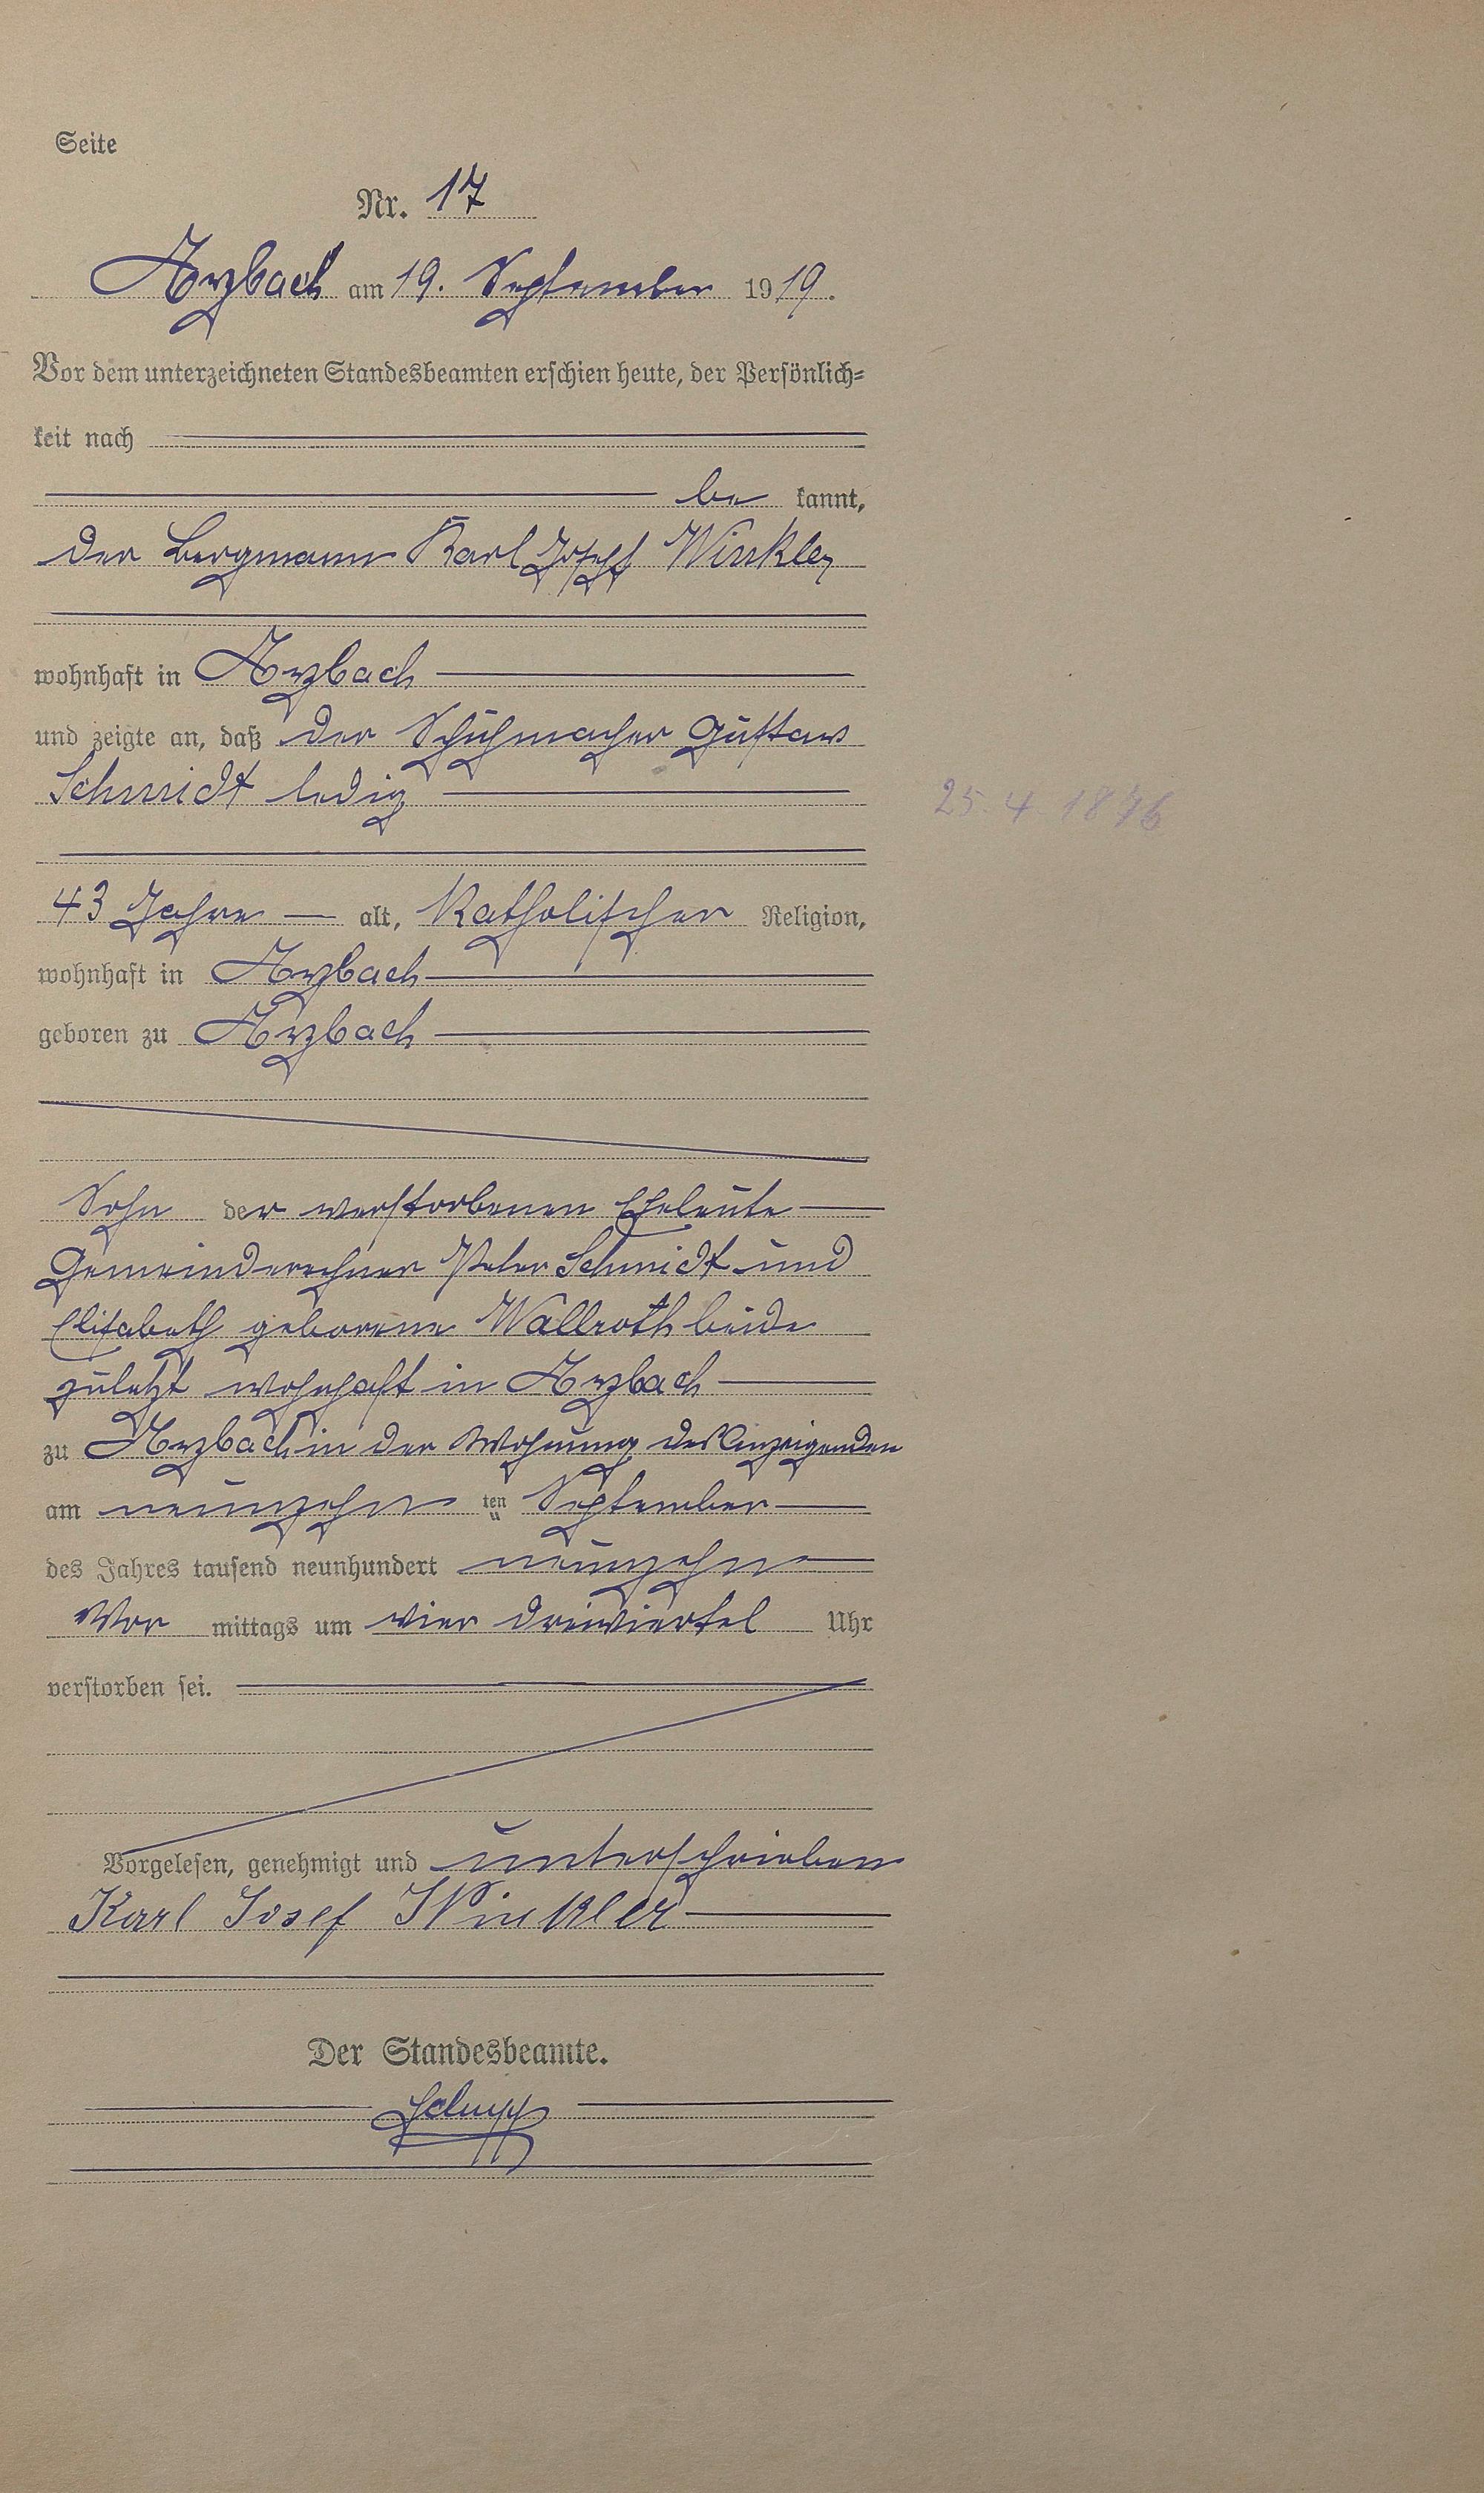 Seite
Nr. 17
Arzbach am 19. September 1919.
Vor dem unterzeichneten Standesbeamten erschien heute, der Persönlich-
keit nach
be kannt,
der Bergmann Karl Joseph Winkler
wohnhaft in Arzbach
und zeigte an, daß der Schuhmacher Gustav
Schmidt ledig
25. 4. 1876
43 Jahre alt, katholischer Religion,
wohnhaft in Arzbach
geboren zu Arzbach
Sohn der verstorbenen Eheleute
Gemeinderechner Peter Schmidt und
Elisabeth geborene Wallroth beide
zuletzt wohnhaft in Arzbach
zu Arzbach in der Wohnung des Anzeigenden
am neunzehn ten September
des Jahres tausend neunhundert neunzehn
Vor mittags um vier dreiviertel Uhr
verstorben sei.
Vorgelesen, genehmigt und unterschrieben
Karl Josef Winkler
Der Standesbeamte.
Schupp